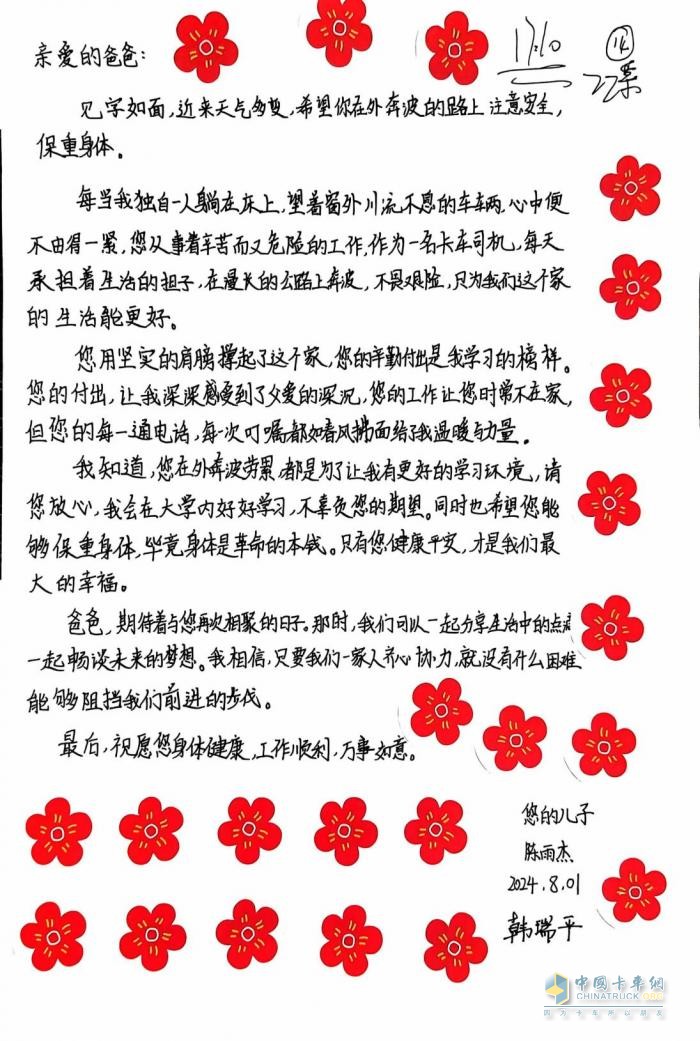 亲爱的爸爸:
17:10
见字如面,近来天气多变,希望你在外奔波的路上注意安全,
保重身体。
每当我独自一人躺在床上,望着窗外川流不息的车辆,心中便
不由得一紧,您从事着辛苦而又危险的工作,作为一名卡车司机,每天
承担着生活的担子,在漫长的公路上奔波,不畏艰险,只为我们这个家
的生活能更好。
您用坚实的肩膀撑起了这个家,您的辛勤付出是我学习的榜样。
您的付出,让我深深感受到了父爱的深沉,您的工作让您时常不在家,
但您的每一通电话,每一次叮嘱都如春风拂面给了我温暖与力量。
我知道,您在外奔波劳累,都是为了让我有更好的学习环境,请
您放心,我会在大学内好好学习,不辜负您的期望。同时也希望您能
够保重身体,毕竟身体是革命的本钱。只有您健康平安,才是我们最
大的幸福。
爸爸,期待着与您再次相聚的日子。那时,我们可以一起分享生活中的点
一起畅谈未来的梦想。我相信,只要我们一家人齐心协力,就没有什么困难
能够阻挡我们前进的步伐。
最后,祝愿您身体健康,工作顺利,万事如意。
您的儿子
陈雨杰
2024.8.01
韩瑞平
中国卡车网
CHINATRUCK.ORG
因为卡车所以朋友